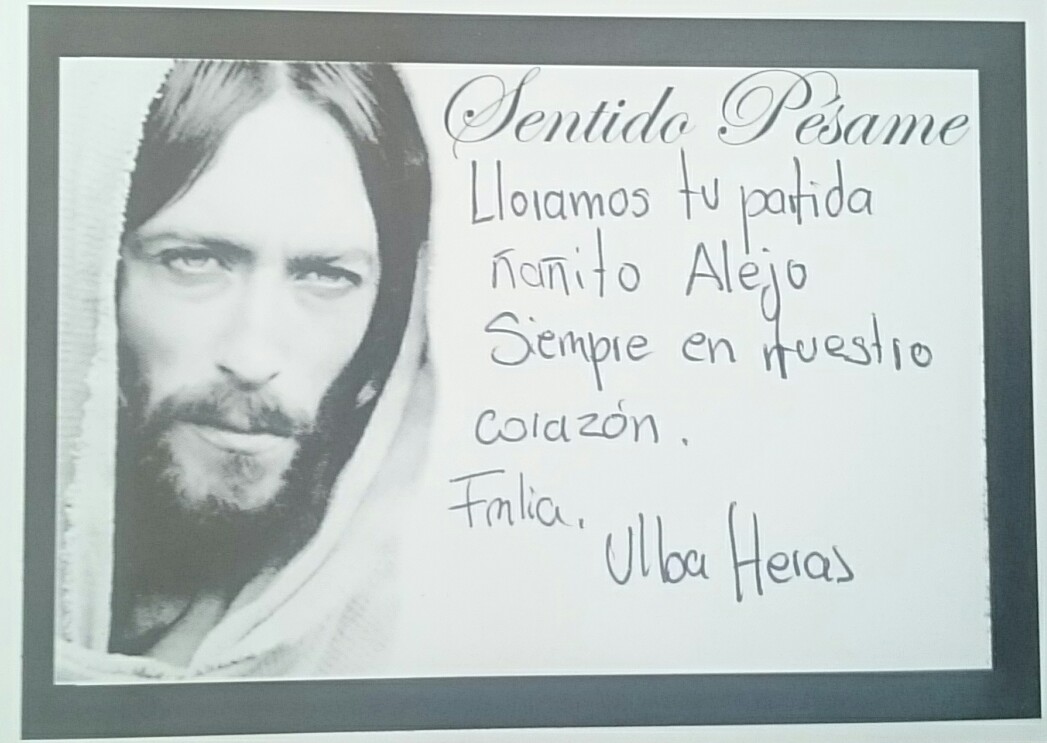 Sentido Pésame
Lloramos tu partida
ñañito Alejo
Siempre en nuestro
corazón.
Fmlia.
Ulba Heras